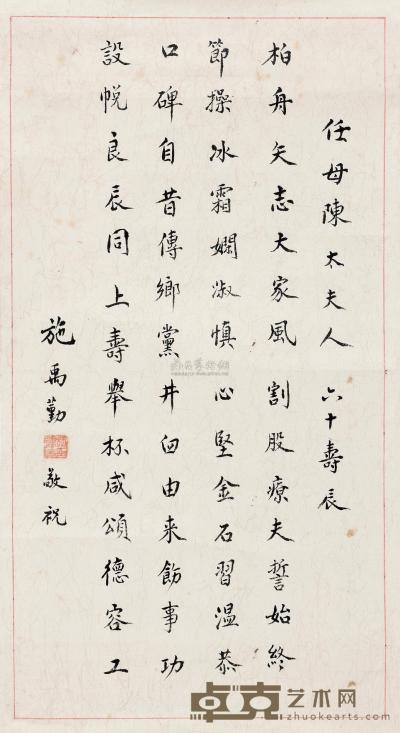 任母陳太夫人六十壽辰
柏舟矢志大家風割股療夫誓始終
節操冰霜嫻淑慎心堅金石習温恭
口碑自昔傳鄉黨井臼由来飭事功
設帨良辰同上壽舉杯咸頌德容工
施禹勤敬祝
卓克艺术网
www.zhuokearts.com